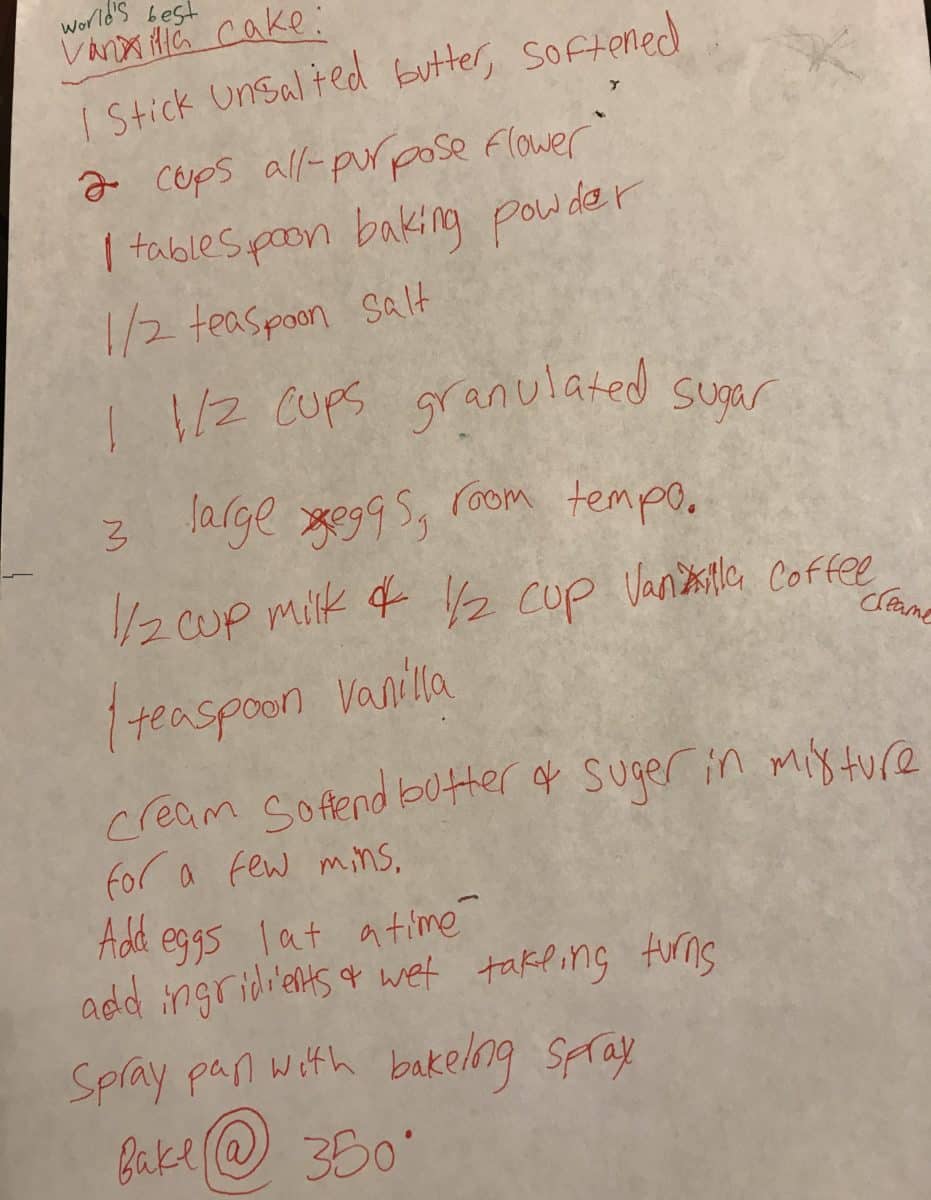 world's best
Vanilla cake:
1 Stick Unsalted butter, softened
2 cups all-purpose flower
1 tablespoon baking powder
1/2 teaspoon salt
1 1/2 cups granulated sugar
3 large eggs, room tempo.
1/2 cup milk & 1/2 cup Vanilla coffee
creame
1 teaspoon vanilla
cream softend butter & suger in mixture
for a few mins.
Add eggs 1 at a time
add ingridients & wet takeing turns
Spray pan with bakeing spray
Bake @ 350°